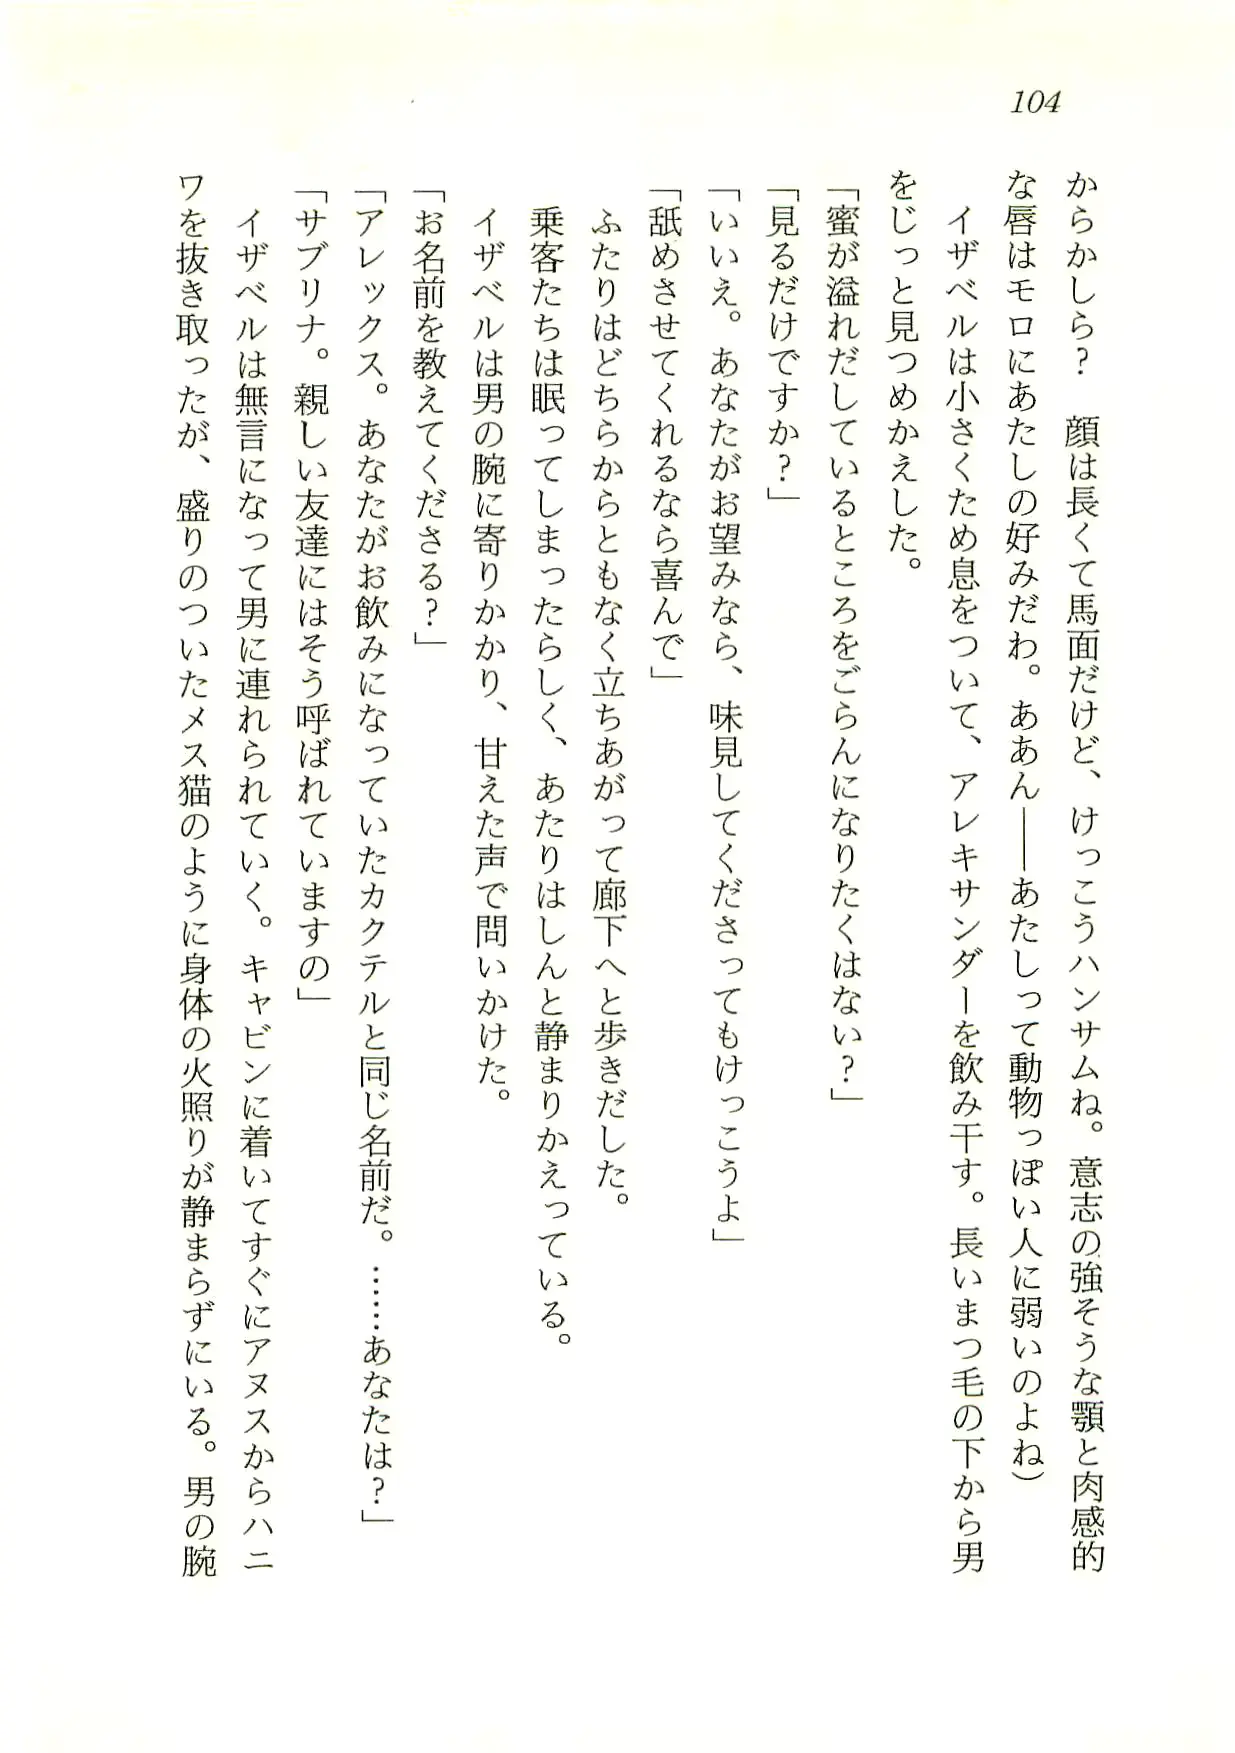 104
からかしら？　顔は長くて馬面だけど、けっこうハンサムね。意志の強そうな顎と肉感的
な唇はモロにあたしの好みだわ。ああん――あたしって動物っぽい人に弱いのよね）
　イザベルは小さくため息をついて、アレキサンダーを飲み干す。長いまつ毛の下から男
をじっと見つめかえした。
「蜜が溢れだしているところをごらんになりたくはない？」
「見るだけですか？」
「いいえ。あなたがお望みなら、味見してくださってもけっこうよ」
「舐めさせてくれるなら喜んで」
　ふたりはどちらからともなく立ちあがって廊下へと歩きだした。
　乗客たちは眠ってしまったらしく、あたりはしんと静まりかえっている。
　イザベルは男の腕に寄りかかり、甘えた声で問いかけた。
「お名前を教えてくださる？」
「アレックス。あなたがお飲みになっていたカクテルと同じ名前だ。……あなたは？」
「サブリナ。親しい友達にはそう呼ばれていますの」
　イザベルは無言になって男に連れられていく。キャビンに着いてすぐにアヌスからハニ
ワを抜き取ったが、盛りのついたメス猫のように身体の火照りが静まらずにいる。男の腕